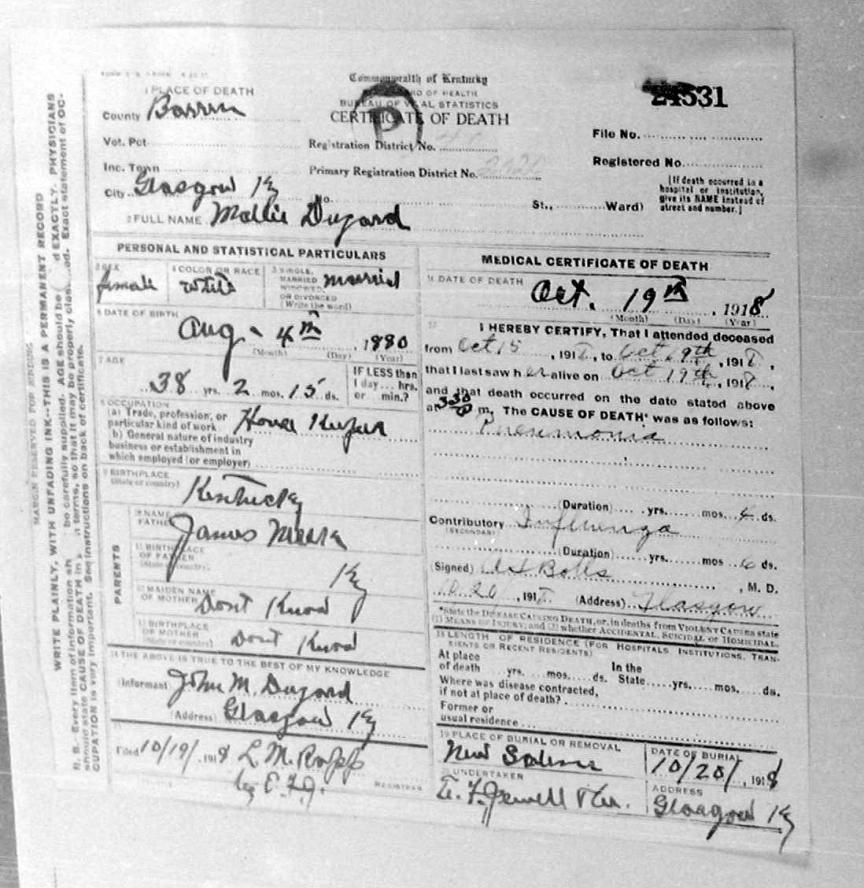 Commonwealth of Kentucky
BOARD OF HEALTH
BUREAU OF VITAL STATISTICS
CERTIFICATE OF DEATH
24531
1 PLACE OF DEATH
County Barren
Vot. Pct
Inc. Town
City Glasgow Ky
No.
St., Ward)
Registration District No.
Primary Registration District No.
File No.
Registered No.
[If death occurred in a
hospital or institution,
give its NAME instead of
street and number.]
2 FULL NAME Mallie Dugard
PERSONAL AND STATISTICAL PARTICULARS
3 SEX
female
4 COLOR OR RACE
White
5 SINGLE,
MARRIED
WIDOWED,
OR DIVORCED
(Write the word)
married
6 DATE OF BIRTH
Aug - 4th , 1880
(Month) (Day) (Year)
7 AGE
38 yrs. 2 mos. 15 ds.
IF LESS than
1 day... hrs.
or min.?
8 OCCUPATION
(a) Trade, profession, or
particular kind of work House Keeper
b) General nature of industry
business or establishment in
which employed (or employer)
9 BIRTHPLACE
(State or country)
Kentucky
PARENTS
10 NAME
FATHER
James
11 BIRTHPLACE
OF FATHER
(State or country)
Ky
12 MAIDEN NAME
OF MOTHER Dont Know
13 BIRTHPLACE
OF MOTHER
(State or country) Dont Know
14 THE ABOVE IS TRUE TO THE BEST OF MY KNOWLEDGE
(Informant) John M. Dugard
(Address) Glasgow Ky
15
Filed 10/19/, 1918 L. M.
by E.F.J.
REGISTRAR
MEDICAL CERTIFICATE OF DEATH
16 DATE OF DEATH
Oct. 19th , 1918
(Month) (Day) (Year)
17 I HEREBY CERTIFY, That I attended deceased
from Oct 15 , 1918, to Oct 19th, 1918,
that I last saw her alive on Oct 19th, 1918,
and that death occurred on the date stated above
at 330 m. The CAUSE OF DEATH* was as follows:
Pneumonia
(Duration) yrs. mos. 4 ds.
Contributory Influenza
(SECONDARY)
(Duration) yrs. mos 6 ds.
(Signed) , M. D.
10 20, 1918 (Address) Glasgow
*State the DISEASE CAUSING DEATH, or, in deaths from VIOLENT CAUSES state
(1) MEANS OF INJURY; and (2) whether ACCIDENTAL, SUICIDAL or HOMICIDAL.
18 LENGTH OF RESIDENCE (FOR HOSPITALS INSTITUTIONS, TRAN-
SIENTS OR RECENT RESIDENTS)
At place
of death yrs. mos. ds.
In the
State yrs. mos. ds.
Where was disease contracted,
if not at place of death?
Former or
usual residence
19 PLACE OF BURIAL OR REMOVAL
New Salem
DATE OF BURIAL
10/20/, 1918
20 UNDERTAKER
E. F. Jewell
ADDRESS
Glasgow Ky
MARGIN RESERVED FOR BINDING
WRITE PLAINLY, WITH UNFADING INK--THIS IS A PERMANENT RECORD
N. B. Every item of information be carefully supplied. AGE should be EXACTLY. PHYSICIANS
should state CAUSE OF DEATH in terms, so that it may be properly Exact statement of OC-
CUPATION is very important. See instructions on back of certificate.